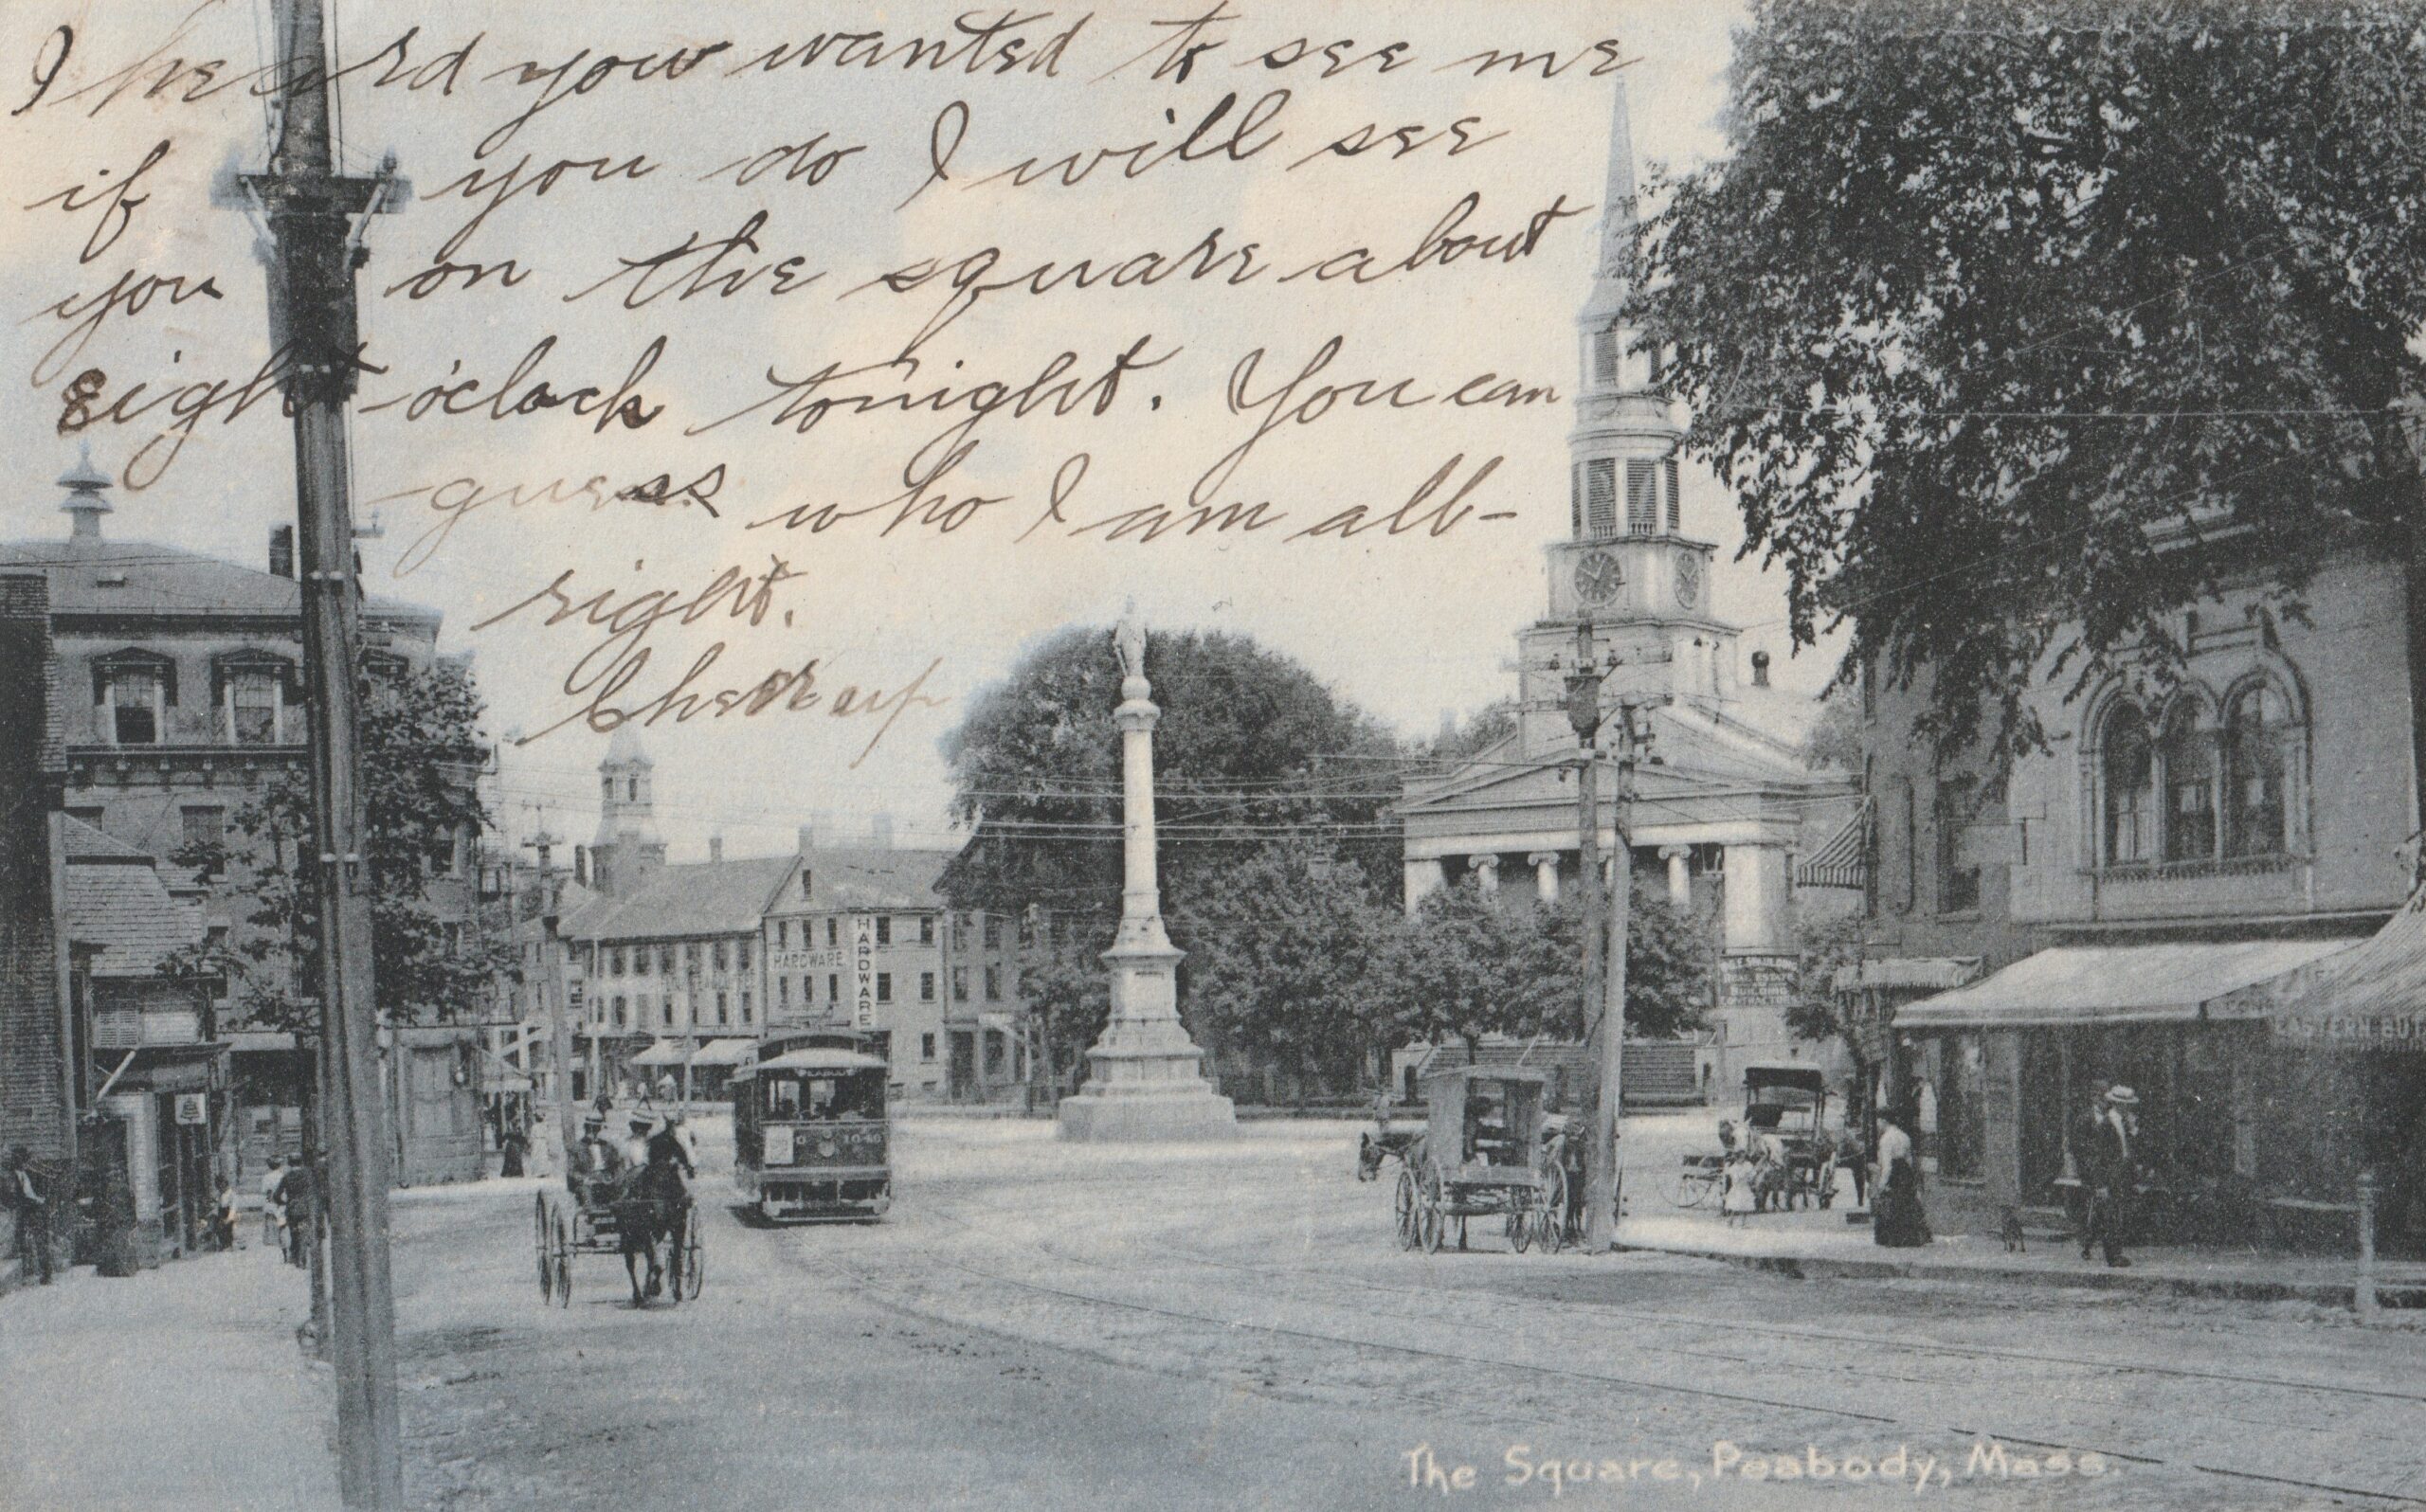 I heard you wanted to see me
if you do I will see
you on the square about
eight o'clock tonight. You can
guess who I am all-
right.
Cheer up
HARDWARE
HARDWARE
1040
BUILDING
CONTRACTORS
EASTERN BUT
The Square, Peabody, Mass.